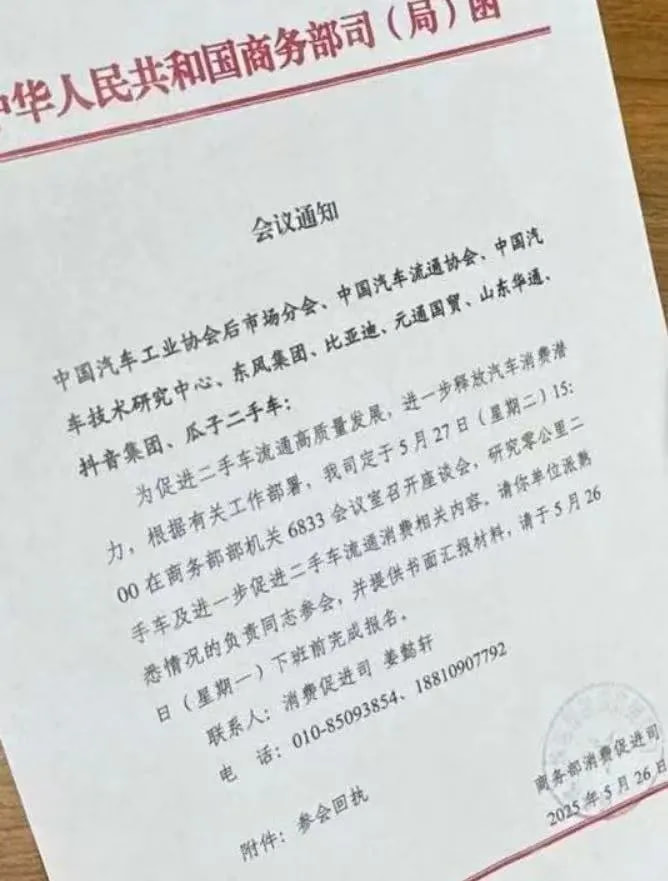 中华人民共和国商务部司（局）函
会议通知
中国汽车工业协会后市场分会、中国汽车流通协会、中国汽
车技术研究中心、东风集团、比亚迪、元通国贸、山东华通、
抖音集团、瓜子二手车：
为促进二手车流通高质量发展，进一步释放汽车消费潜
力，根据有关工作部署，我司定于5月27日（星期二）15:
00在商务部部机关6833会议室召开座谈会，研究零公里二
手车及进一步促进二手车流通消费相关内容。请你单位派熟
悉情况的负责同志参会，并提供书面汇报材料，请于5月26
日（星期一）下班前完成报名。
联系人：消费促进司 姜懿轩
电 话：010-85093854、18810907792
附件：参会回执
商务部消费促进司
2025年5月26日